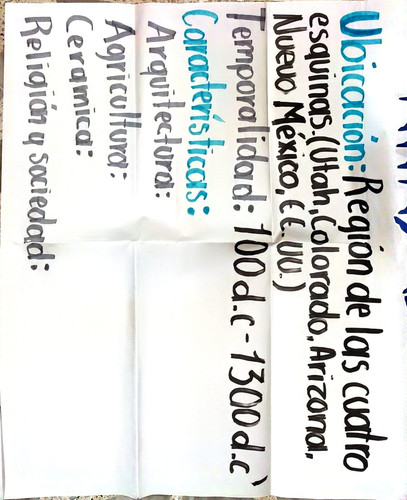 Ubicación: Región de las cuatro
esquinas. (Utah, Colorado, Arizona,
Nuevo México, EE.UU.)
Temporalidad: 100 d.c - 1300 d.c
Características:
Arquitectura:
Agricultura:
Ceramica:
Religión y sociedad: